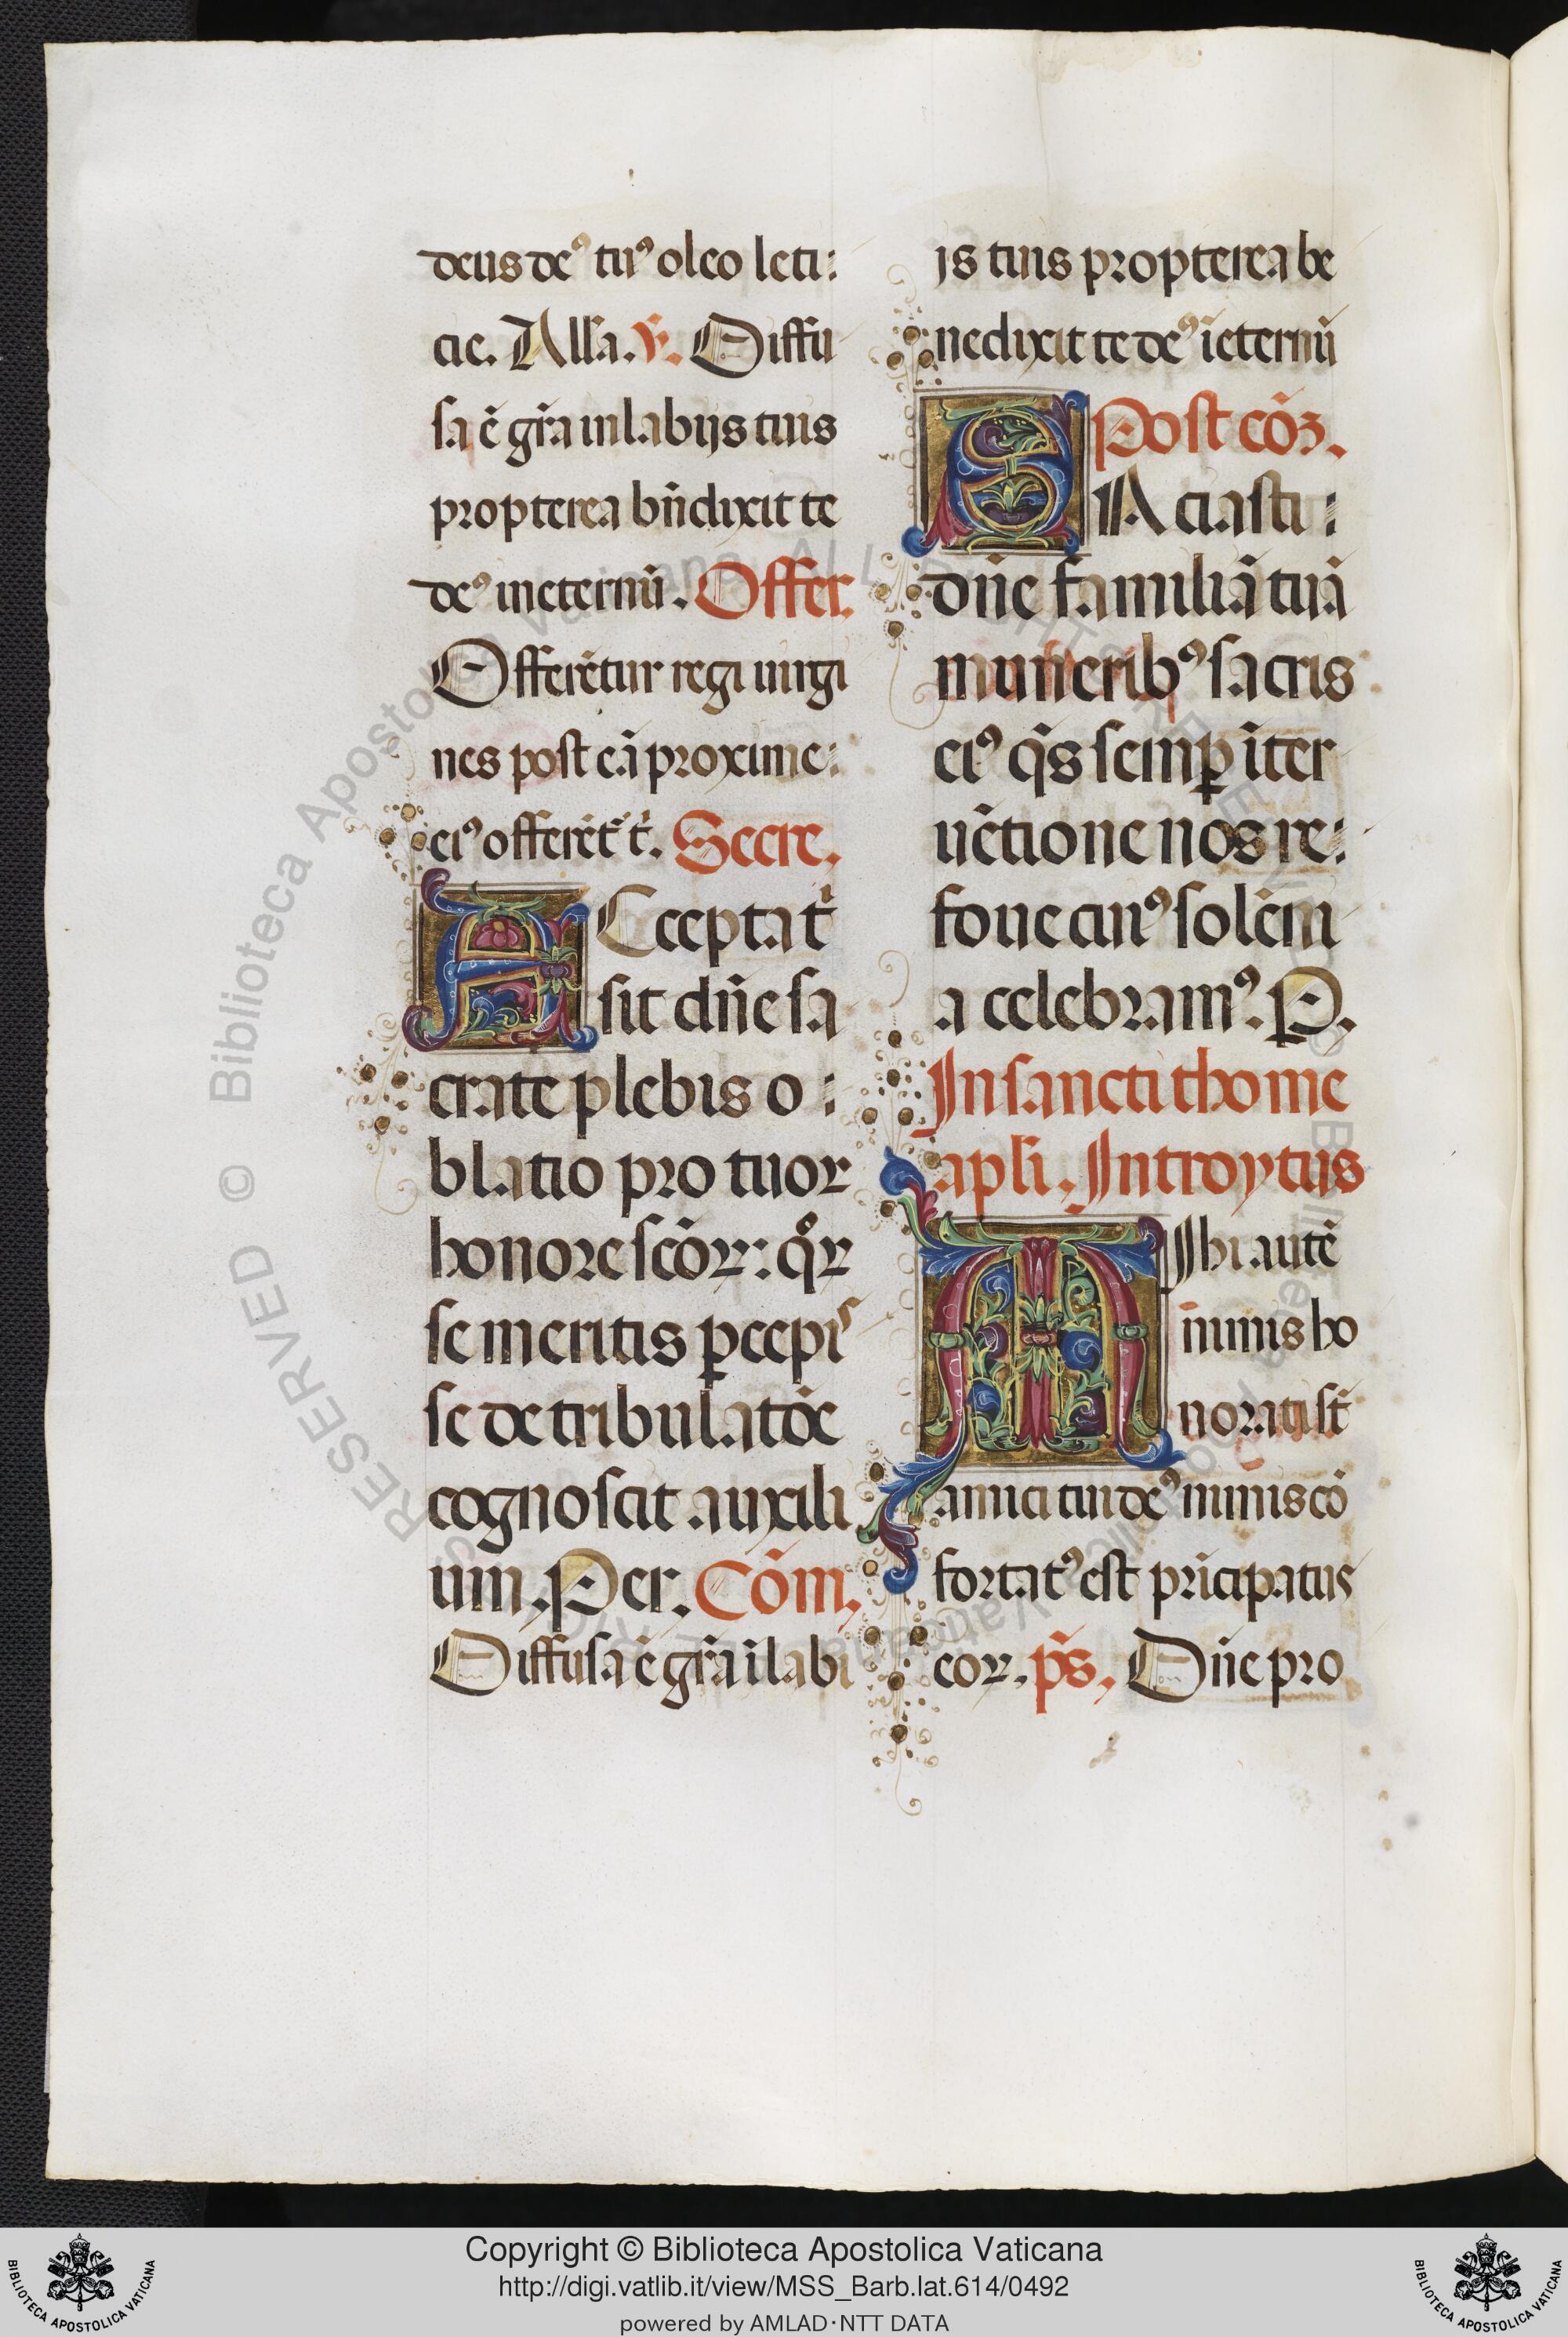 deus deꝰ tuꝰ oleo leti:
cie. All'a. ℣. Diffu
sa ē gr̄a in labijs tuis
propterea bn̄dixit te
deꝰ in eternū. Offer.
Offerētur regi uirgi
nes post eā proxime:
eiꝰ offerēt᷑ t᷑. Secre.
ACceptat᷑
sit dn̄e sa
crate plebis o:
blatio pro tuoꝝ
honore scōꝝ: qͦꝝ
se meritis ꝑcepis
se de tribulatōe
cognoscit auxili
um. Per. Cōm.
Diffusa ē gr̄a ī labi
js tuis propterea be
nedixit te deꝰ ī eternū
Post cōꝫ.
SAciasti:
dn̄e familiā tuā
muneribꝰ sacris
eiꝰ q̄s semꝑ īter
uētione nos re:
foue cuiꝰ solēm
a celebramꝰ. P.
In sancti thome
apl'i. Introytus
MIhi autē
nimis ho
norati st̄
amici tui deꝰ nimis cō
fortatꝰ est pricipatus
eoꝝ. p̄s. Dn̄e pro
Copyright © Biblioteca Apostolica Vaticana
http://digi.vatlib.it/view/MSS_Barb.lat.614/0492
powered by AMLAD·NTT DATA
BIBLIOTECA APOSTOLICA VATICANA
BIBLIOTECA APOSTOLICA VATICANA